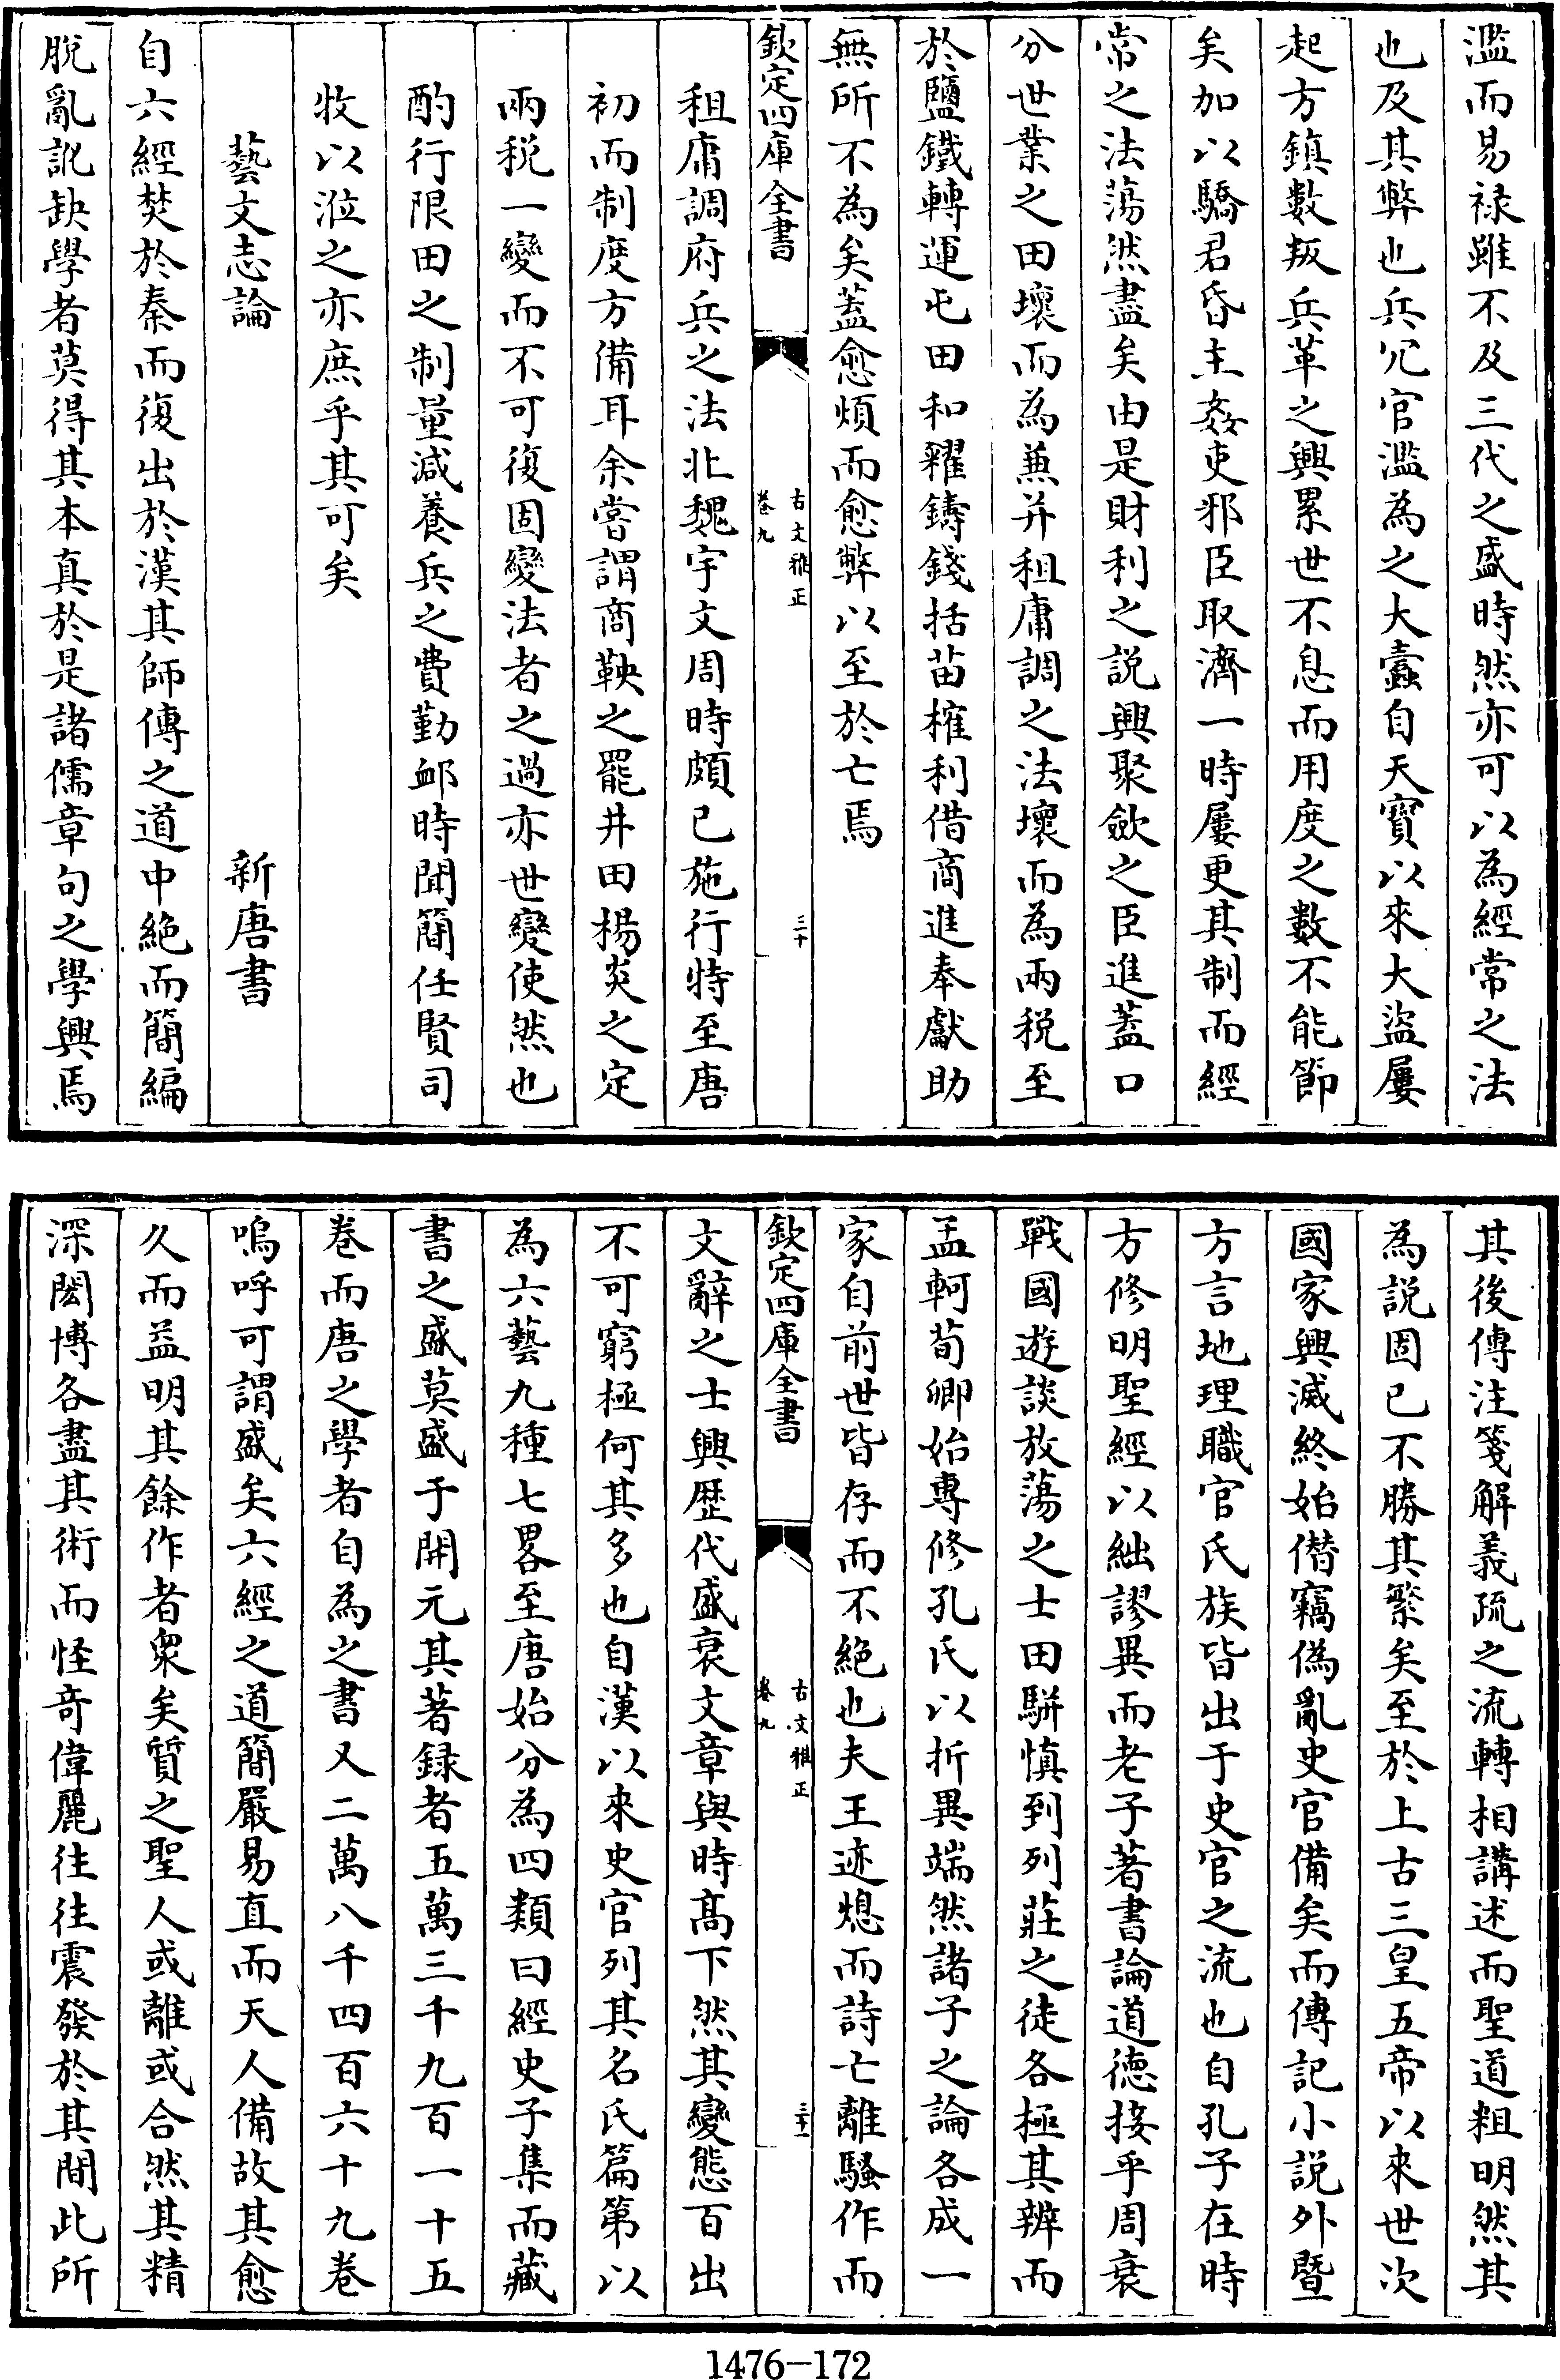 濫而易禄雖不及三代之盛時然亦可以為經常之法
也及其弊也兵冗官濫為之大蠹自天寶以來大盜屢
起方鎮數叛兵革之興累世不息而用度之數不能節
矣加以驕君昏主姦吏邪臣取濟一時屢更其制而經
常之法蕩然盡矣由是財利之説興聚歛之臣進蓋口
分世業之田壞而為兼并租庸調之法壞而為兩税至
於鹽鐵轉運屯田和糴鑄錢括苗榷利借商進奉獻助
無所不為矣蓋愈煩而愈弊以至於亡焉
欽定四庫全書
古文雅正
卷九
三十
租庸調府兵之法北魏宇文周時頗已施行特至唐
初而制度方備耳余嘗謂商鞅之罷井田楊炎之定
兩税一變而不可復固變法者之過亦世變使然也
酌行限田之制量減養兵之費勤卹時聞簡任賢司
牧以涖之亦庶乎其可矣
藝文志論
新唐書
自六經焚於秦而復出於漢其師傳之道中絶而簡編
脱亂訛缺學者莫得其本真於是諸儒章句之學興焉
其後傳注箋解義疏之流轉相講述而聖道粗明然其
為説固已不勝其繁矣至於上古三皇五帝以來世次
國家興滅終始僭竊偽亂史官備矣而傳記小説外暨
方言地理職官氏族皆出于史官之流也自孔子在時
方修明聖經以絀謬異而老子著書論道徳接乎周衰
戰國遊談放蕩之士田駢慎到列莊之徒各極其辨而
孟軻荀卿始專修孔氏以折異端然諸子之論各成一
家自前世皆存而不絶也夫王迹熄而詩亡離騷作而
欽定四庫全書
古文雅正
卷九
三十一
文辭之士興歴代盛衰文章與時髙下然其變態百出
不可窮極何其多也自漢以來史官列其名氏篇第以
為六藝九種七畧至唐始分為四類曰經史子集而藏
書之盛莫盛于開元其著録者五萬三千九百一十五
卷而唐之學者自為之書又二萬八千四百六十九卷
嗚呼可謂盛矣六經之道簡嚴易直而天人備故其愈
久而益明其餘作者衆矣質之聖人或離或合然其精
深閎博各盡其術而怪竒偉麗往往震發於其間此所
1476-172